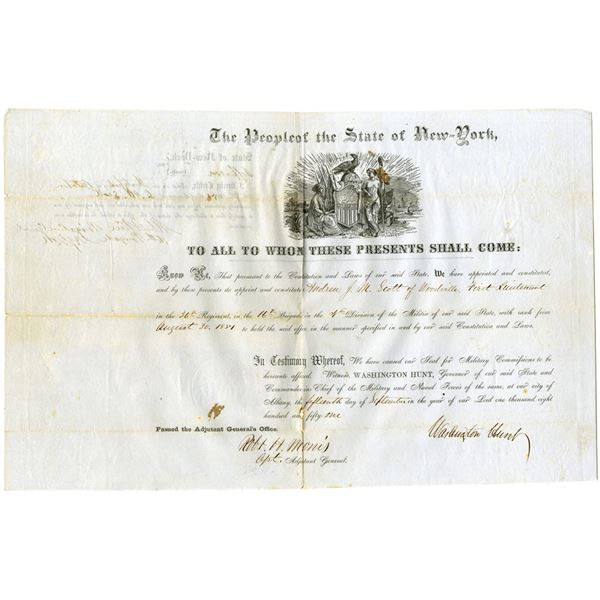 The People of the State of New-York,
TO ALL TO WHOM THESE PRESENTS SHALL COME:
Know Ye, That pursuant to the Constitution and Laws of our said State, We have appointed and constituted,
and by these presents do appoint and constitute Andrew J. M. Scott of Woodville First Lieutenant
in the 36th Regiment, in the 16th Brigade in the 4th Division of the Militia of our said State, with rank from
August 30, 1851 to hold the said office in the manner specified in and by our said Constitution and Laws.
In Testimony Whereof, We have caused our Seal for Military Commissions to be
hereunto affixed. Witness WASHINGTON HUNT, Governor of our said State and
Commander-in-Chief of the Military and Naval Forces of the same, at our city of
Albany, the fifteenth day of September in the year of our Lord one thousand eight
hundred and fifty one
Passed the Adjutant General's Office.
Washington Hunt
Robt. H. Morris
Adjutant General.